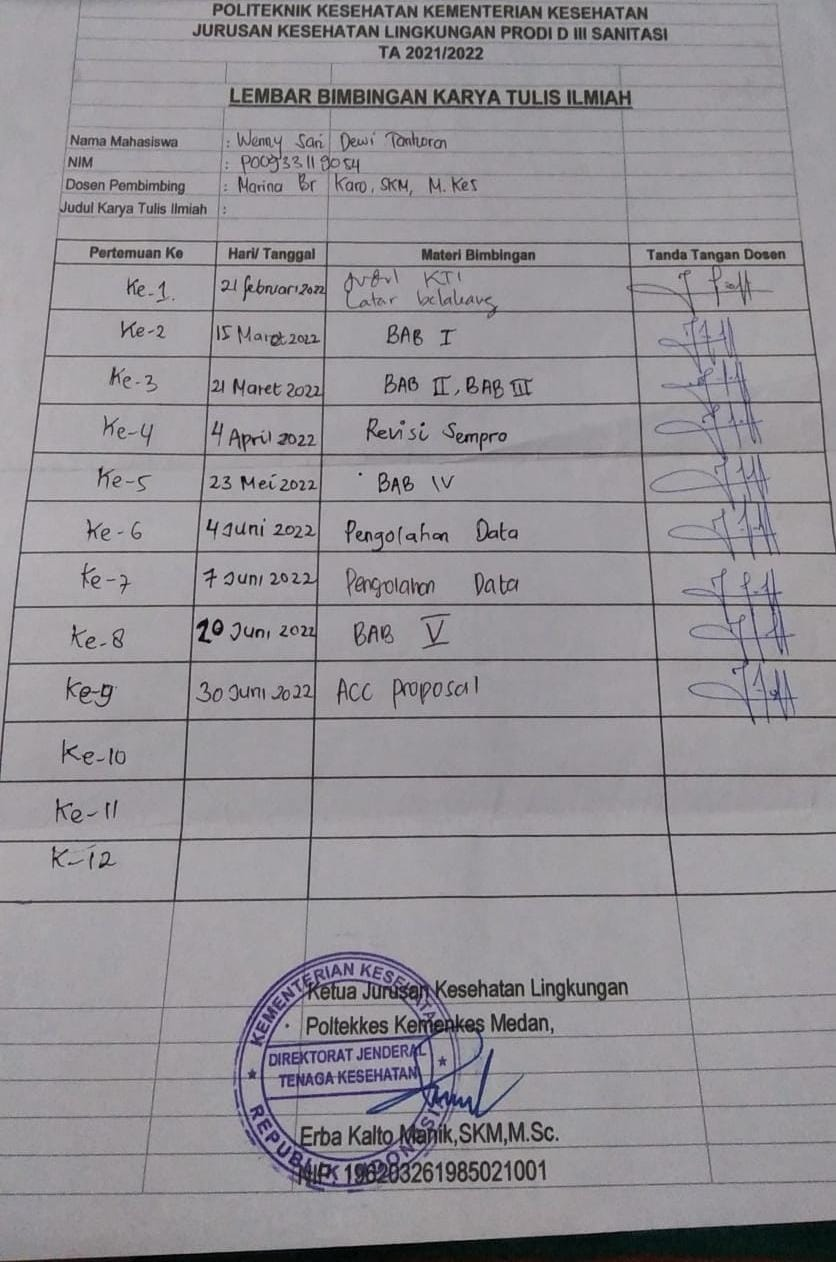 POLITEKNIK KESEHATAN KEMENTERIAN KESEHATAN
JURUSAN KESEHATAN LINGKUNGAN PRODI D III SANITASI
TA 2021/2022
LEMBAR BIMBINGAN KARYA TULIS ILMIAH
Nama Mahasiswa : Wenny Sari Dewi Tanhoron
NIM : P00933119054
Dosen Pembimbing : Marina Br Karo, SKM, M. Kes
Judul Karya Tulis Ilmiah :
Pertemuan Ke Hari/ Tanggal Materi Bimbingan Tanda Tangan Dosen
Ke-1. 21 februari 2022 KTI
Latar belakang
Ke-2 15 Maret 2022 BAB I
Ke-3 21 Maret 2022 BAB II, BAB III
Ke-4 4 April 2022 Revisi Sempro
Ke-5 23 Mei 2022 BAB IV
Ke-6 4 Juni 2022 Pengolahan Data
Ke-7 7 Juni 2022 Pengolahan Data
Ke-8 20 Juni 2022 BAB V
Ke-9 30 Juni 2022 ACC proposal
Ke-10
Ke-11
K-12
KEMENTERIAN KESEHATAN
Ketua Jurusan Kesehatan Lingkungan
Poltekkes Kemenkes Medan,
DIREKTORAT JENDERAL
TENAGA KESEHATAN
REPUBLIK INDONESIA
Erba Kalto Manik,SKM,M.Sc.
NIP. 196203261985021001